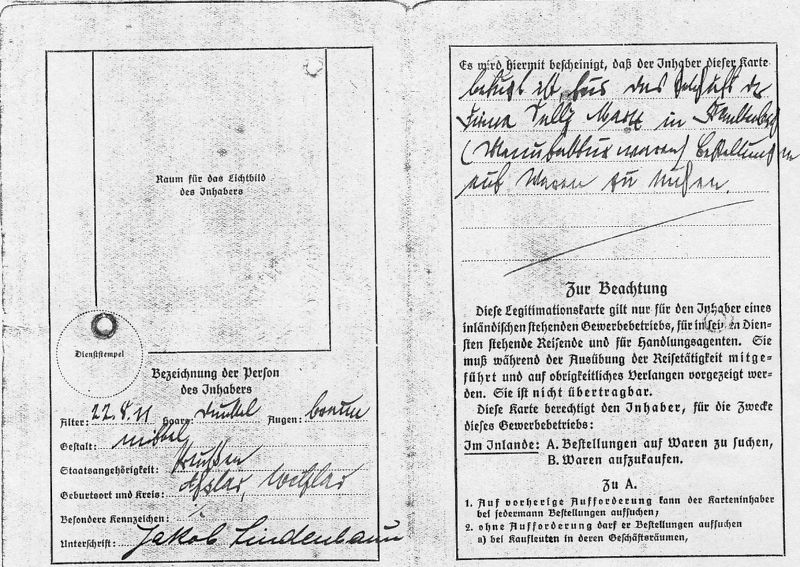 Raum für das Lichtbild
des Inhabers
Dienststempel
Bezeichnung der Person
des Inhabers
Alter: 22.8.11 Haare: dunkel Augen: braun
Gestalt: mittel
Staatsangehörigkeit: Preußen
Geburtsort und Kreis: Aßlar, Wetzlar
Besondere Kennzeichen:
Unterschrift: Jakob Lindenbaum
Es wird hiermit bescheinigt, daß der Inhaber dieser Karte
befugt ist, für das Geschäft der
Firma Sally Marx in
(Manufakturwaren) Bestellungen
auf Waren zu suchen.
Zur Beachtung
Diese Legitimationskarte gilt nur für den Inhaber eines
inländischen stehenden Gewerbebetriebs, für in seinen Dien-
sten stehende Reisende und für Handlungsagenten. Sie
muß während der Ausübung der Reisetätigkeit mitge-
führt und auf obrigkeitliches Verlangen vorgezeigt wer-
den. Sie ist nicht übertragbar.
Diese Karte berechtigt den Inhaber, für die Zwecke
dieses Gewerbebetriebs:
Im Inlande: A. Bestellungen auf Waren zu suchen,
B. Waren aufzukaufen.
Zu A.
1. Auf vorherige Aufforderung kann der Karteninhaber
bei jedermann Bestellungen aufsuchen;
2. ohne Aufforderung darf er Bestellungen aufsuchen
a) bei Kaufleuten in deren Geschäftsräumen,